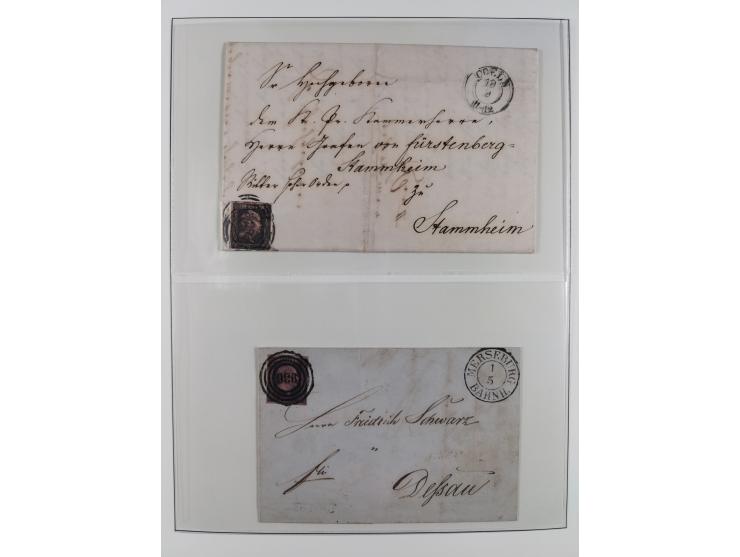 Sr Hochgeboren
dem K. Pr. Kammerherrn,
Herrn Grafen von Fürstenberg=
Stammheim
zu
Stammheim
COELN
19
MERSEBURG
1
5
BAHNH.
Herrn Friedrich Schwarz
frei
Deßau